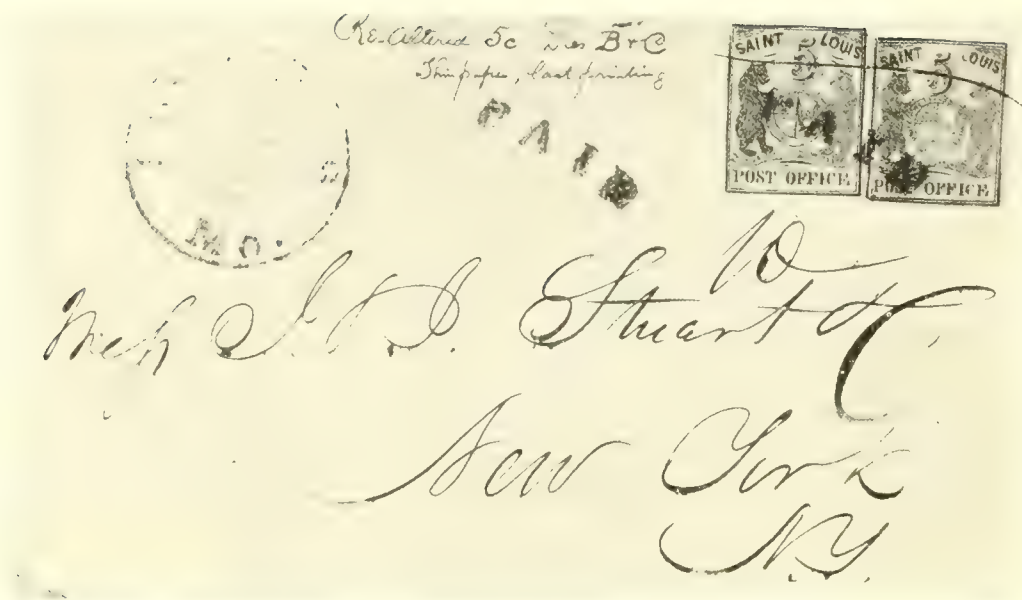 Re-altered 5c Dies B & C
Thin paper, last printing
PAID
SAINT LOUIS
5
POST OFFICE
SAINT LOUIS
5
POST OFFICE
MO.
10
J. & J. Stuart & C
New York
N.Y.